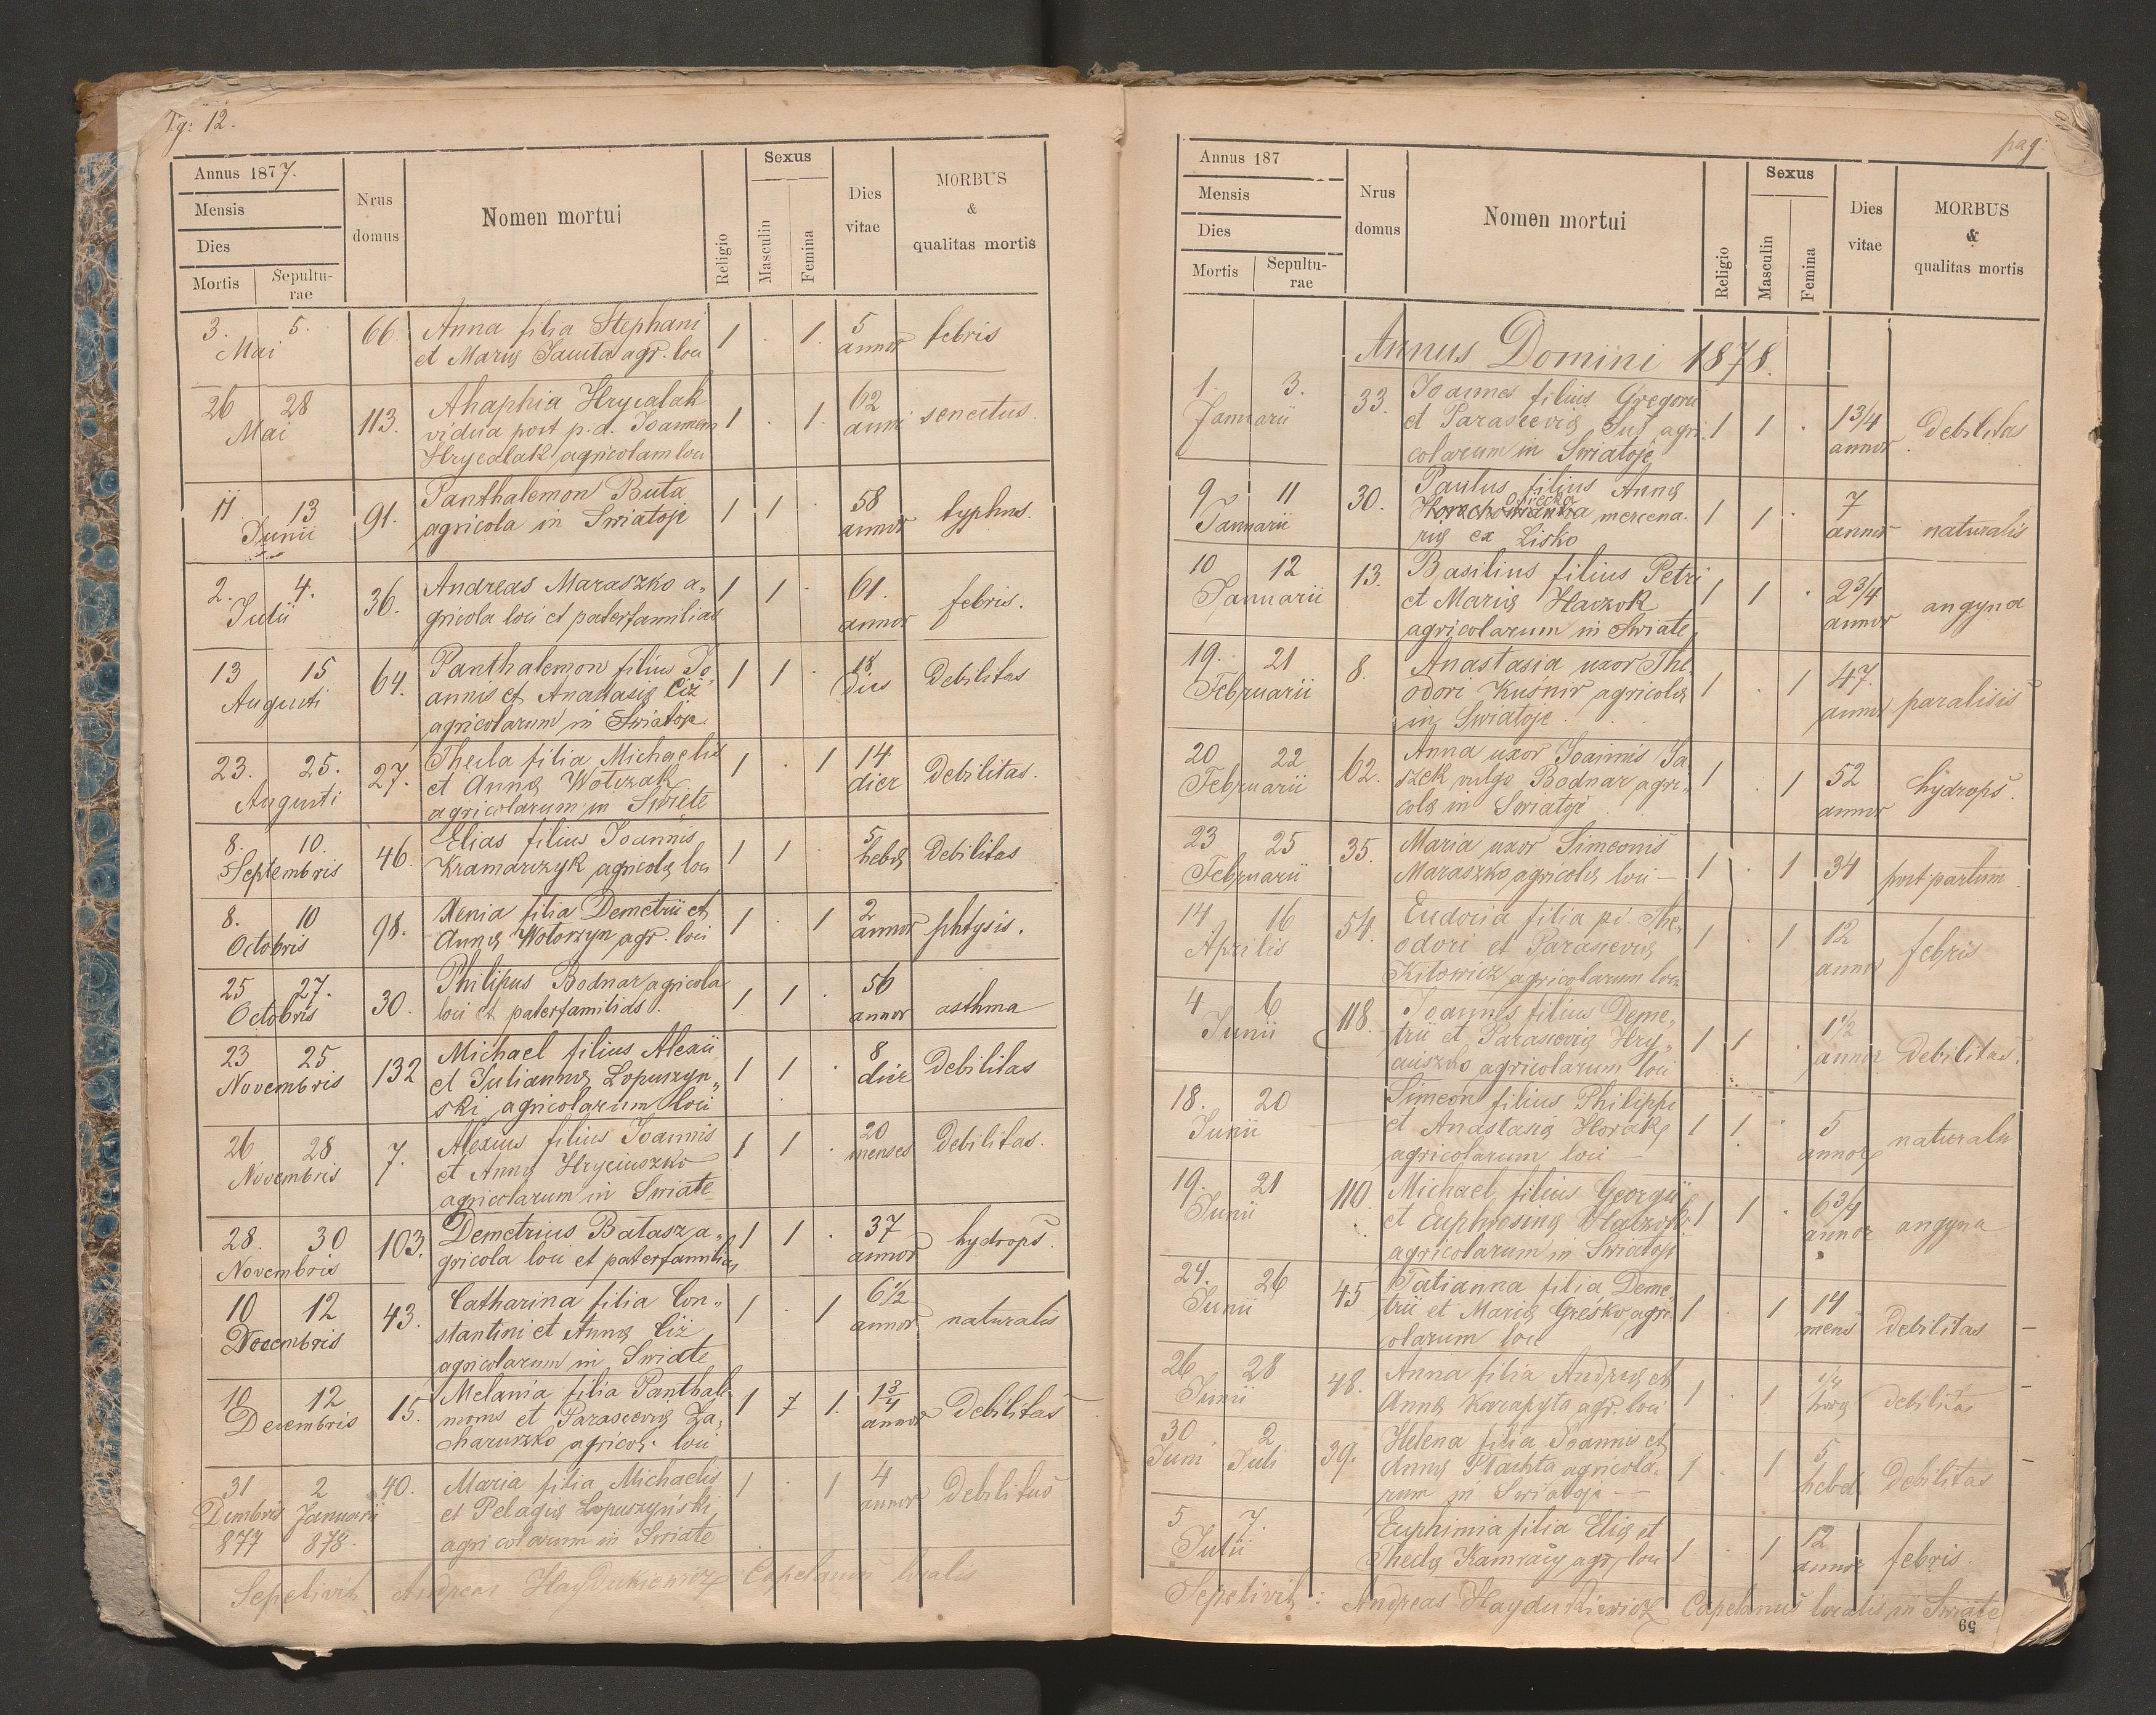 Pg: 12.
Annus 1877.
Mensis
Dies
Mortis
Sepultu-
rae
Nrus
domus
Nomen mortui
Religio
Sexus
Masculin
Femina
Dies
vitae
MORBUS
&
qualitas mortis
3. 5. 66. Anna filia Stephani 1 . 1. 5 febris
Mai et Mariæ agr. loci annor
26 28 113. Ahaphia Hrycalak 1 . 1. 62 senectus.
Mai vidua post p.d. Joannem anni
Hrycalak agricolam loci
11 13 91. Panthalemon Buta 1 1 . 58 typhus.
Junii agricola in Swiatoje annor
2. 4. 36. Andreas Maraszko a„ 1 1 . 61. febris.
Julii gricola loci et paterfamilias annor
13 15 64. Panthalemon filius Jo„ 1 1 . 18 Debilitas
Augusti annis et Anastasiæ Ciż dies
agricolarum in Swiatoje
23. 25. 27. Thecla filia Michaelis 1 . 1 14 Debilitas.
Augusti et Annæ Wołczak dier
agricolarum in Swięte
8. 10. 46. Elias filius Joannis 1 1 . 5 Debilitas
Septembris Kramarczyk agricolæ loci hebd
8. 10 98. Xenia filia Demetrii et 1 . 1 2 phtysis.
Octobris Annæ Wotoszyn agr. loci annor
25 27. 30. Philipus Bodnar agricola 1 1 . 56 asthma
Octobris loci et paterfamilias. annor
23 25 132 Michael filius Alexii 1 1 . 8 Debilitas
Novembris et Julianna Lopuszyn„ dier
ski agricolarum loci
26 28 7. Alexius filius Joannis 1 1 . 20 Debilitas.
Novembris et Annæ Hryciuszko menses
agricolarum in Swiate
28. 30 103. Demetrius Batasz a„ 1 1 . 37 hydrops.
Novembris gricola loci et paterfamilias annor
10 12 43. Catharina filia Con„ 1 . 1 6½ naturalis
Decembris stantini et Annæ Ciż annor
agricolarum in Swiate
10 12 15. Melania filia Panthale„ 1 1. 1¾ Debilitas
Decembris monis et Parascevia Za„ annor
charuszko agricol. loci
31 2 40. Maria filia Michaelis 1 . 1 4 Debilitas
Dembris Januarii et Pelagiæ Lopuszyński annor
877 878. agricolarum in Swiate
Sepelivit Andreas Haydukiewicz Capelanus localis
pag:
Annus 187
Mensis
Dies
Mortis
Sepultu-
rae
Nrus
domus
Nomen mortui
Religio
Sexus
Masculin
Femina
Dies
vitae
MORBUS
&
qualitas mortis
Annus Domini 1878.
1. 3. 33. Joannes filius Gregorii 1 1 . 1¾ Debilitas
Januarii et Parasceviæ Sus agri annor.
colarum in Swiatoje
9 11 30. Paulus filius Annæ 1 1 . 7 naturalis
Januarii mercena. annor
riæ ex Lisko
10 12 13. Basilius filius Petri 1 1 . 2¾ angyna
Januarii et Mariæ Haczok annor
agricolarum in Swiate
19. 21 8. Anastasia uxor The 1 . 1 47. paralisis
Februarii odori Kuśnir agricolæ annor
in Swiatoje.
20 22 62. Anna uxor Joannis Ja 1 . 1 52 hydrops.
Februarii szek vulgo Bodnar agri„ annor
colæ in Swiatoje
23 25 35. Maria uxor Simeonis 1 . 1 34 post partum.
Februarii Maraszko agricolæ loci —
14 16 54. Eudocia filia pd. The„ 1 . 1 12 febris
Aprilis odori et Parasceviæ annor
Kitowicz agricolarum loci
4 6 118. Joannes filius Deme„ 1 1 . 1½ Debilitas.
Junii trii et Parasceviæ Hry„ annor
ciuszko agricolarum loci
18. 20 Simeon filius Philippi 1 1 . 5 naturalis
Junii et Anastasiæ Horak annor
agricolarum loci —
19. 21 110 Michael filius Georgii 1 1 . 6¾ angyna
Junii et Euphrosinæ Haczok annor
agricolarum in Swiatoje
24. 26 45 Tatianna filia Deme„ 1 . 1 14 Debilitas —
Junii trii et Mariæ Greśko agri„ mens
colarum loci
26 28 48. Anna filia Andreæ et 1 . 1 ¼ debilitas —
Junii Annæ Karapyta agr. loci horæ
30 2 39. Helena filia Joannis et 1 . 1 5 Debilitas —
Juni Juli Annæ Płachta agricola„ hebd
rum in Swiatoje —
5 7. Euphimia filia Eliæ et 1 . 1 12 febris.
Julii Theclæ Kamracy agr. loci annor
Sepelivit: Andreas Haydukiewicz Capelanus localis in Swiate
59